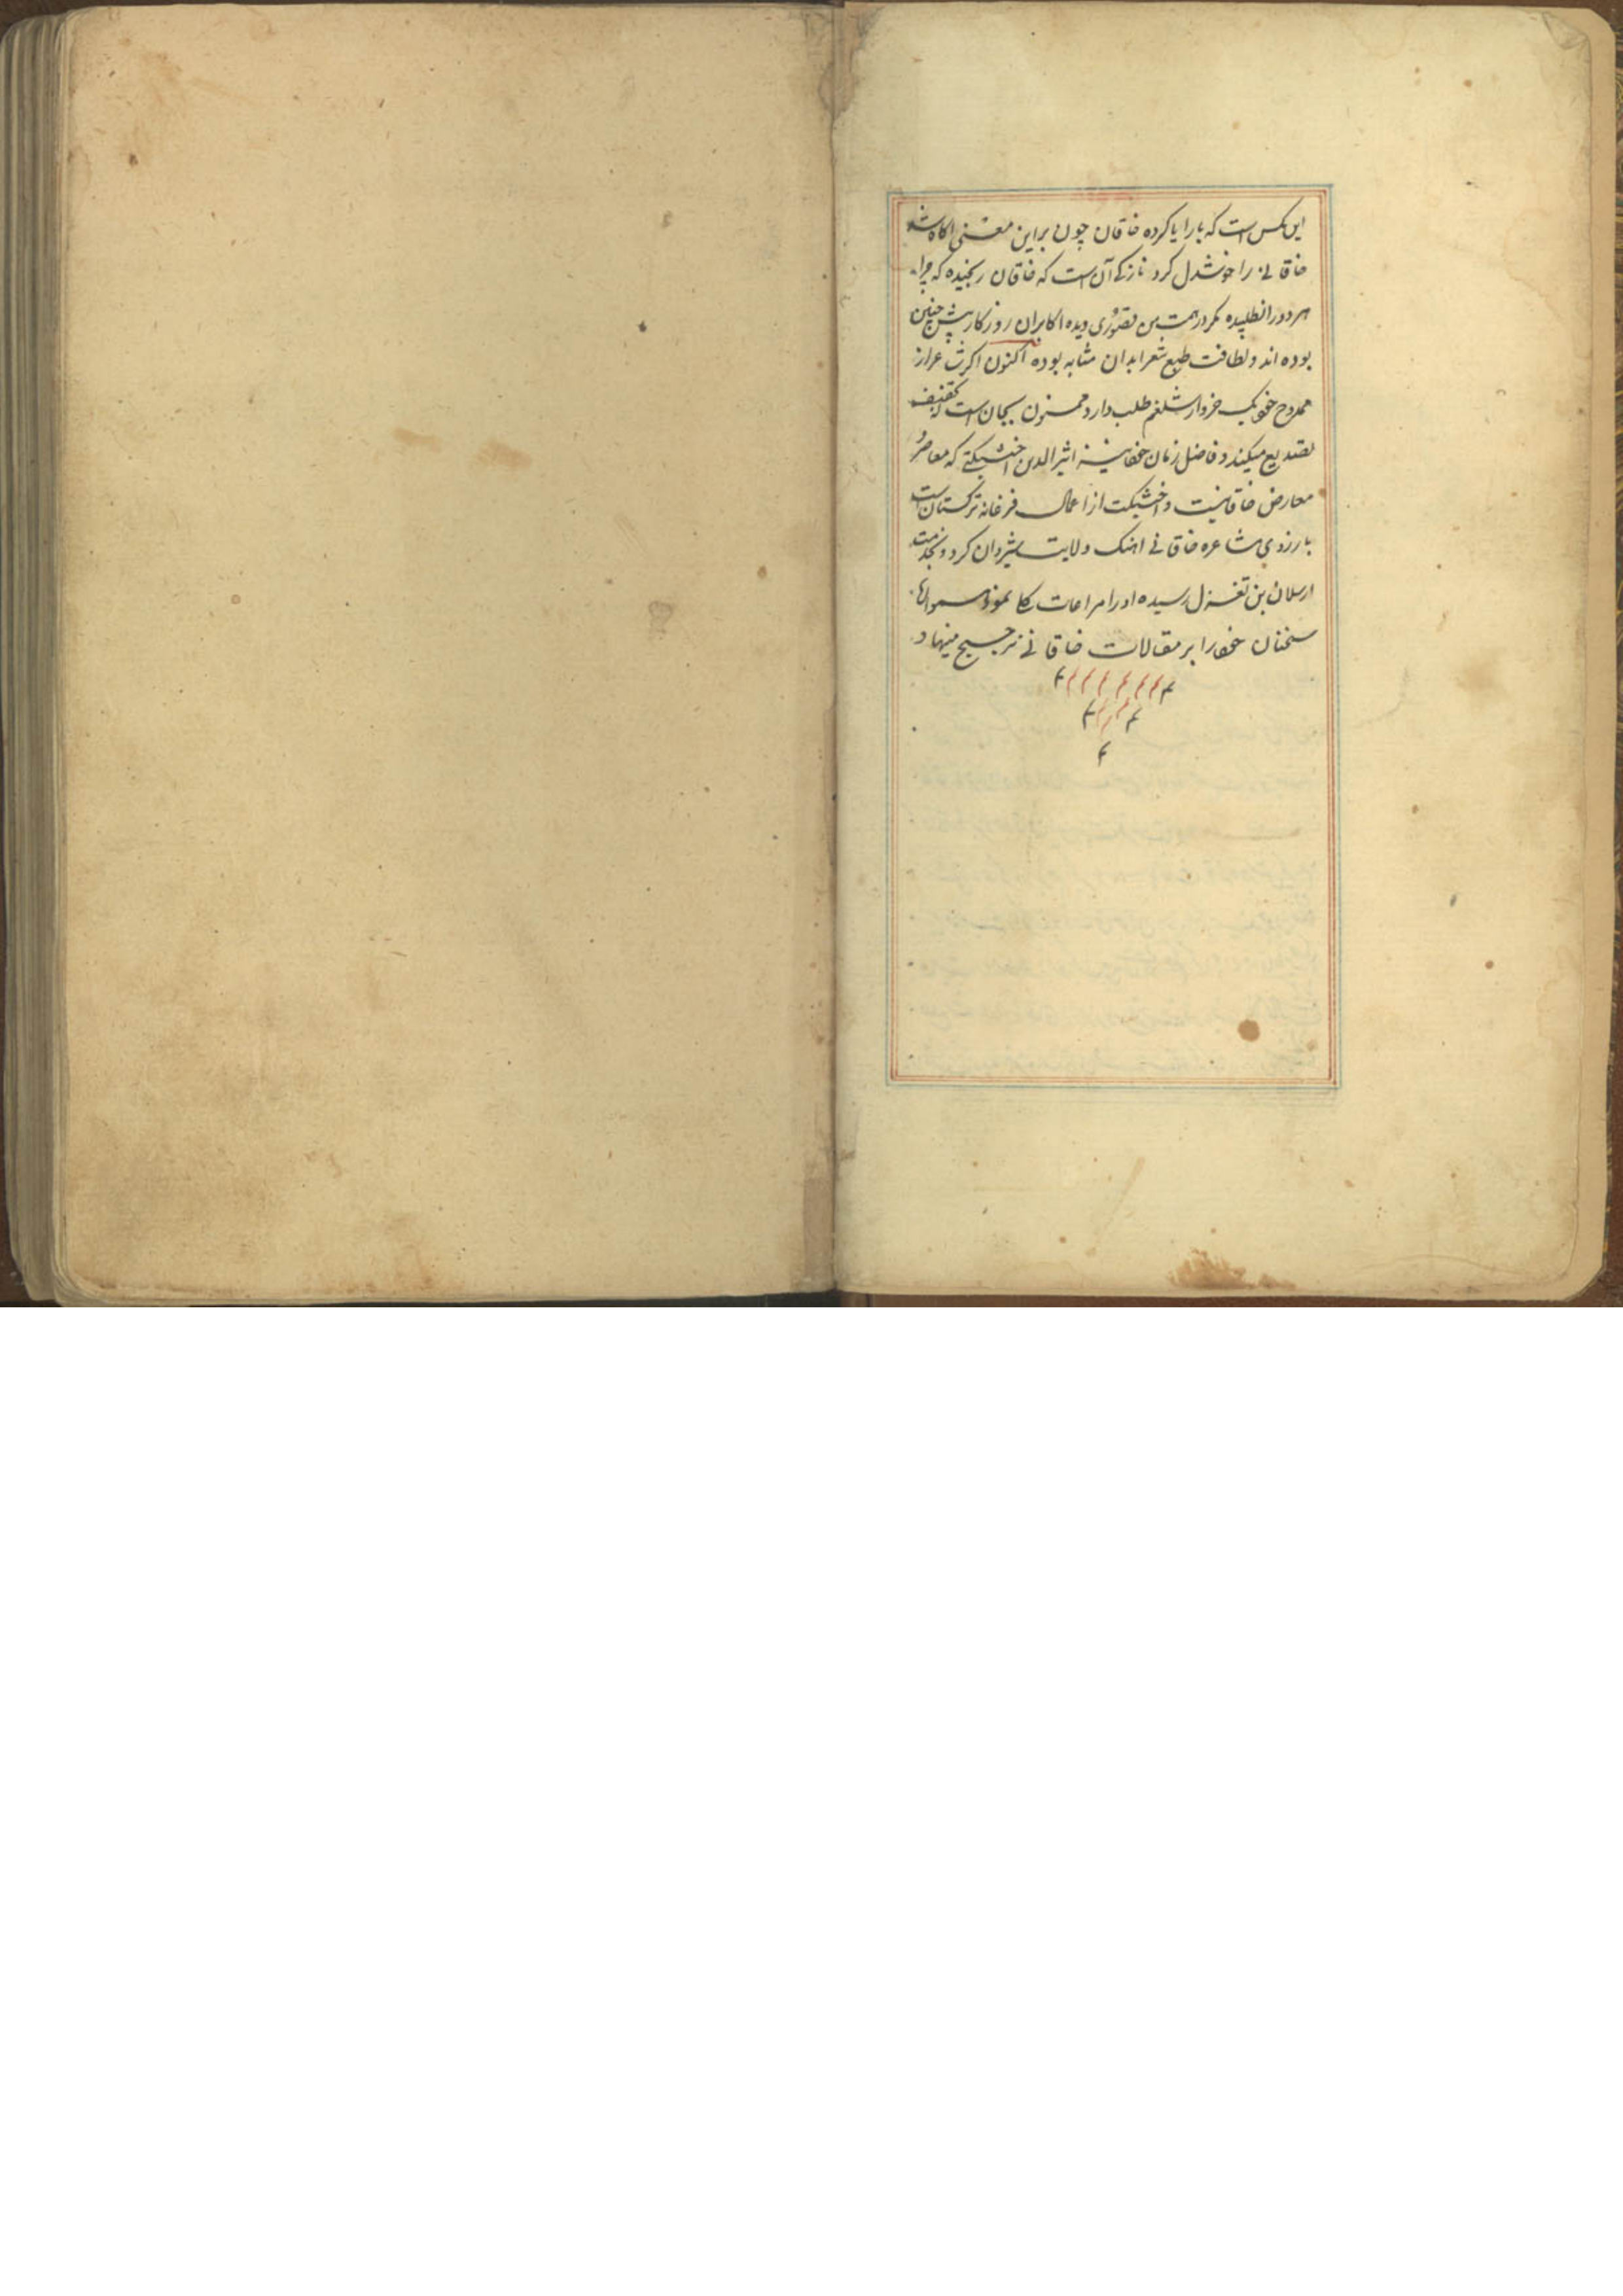 این مکس است که با را یا کرده خاقان چون براین معنی اکاه شد
خاقانی را خوشدل کرد نازکی آن است که خاقان رنجیده که چرا
هر دو را نطلبیده مکر در همت من قصوری دیده اکابران روزکار پیش چنین
بوده اند و لطافت طبع شعرا بدان مثابه بوده اکنون اکر شاعر از
ممدوح خود یک خروار شلغم طلب دارد ممنون
تصدیع میکند و فاضل زمان اثیر الدین اخشیکتی که معاصر و
معارض خاقانیست و اخشیکت از اعمال فرغانه ترکستان است
بارزوی مشاعره خاقانی اهنک ولایت شیروان کرد و بخدمت
ارسلان بن تغزل رسیده او را مراعات کلی نمود
سخنان خود را بر مقالات خاقانی ترجیح مینهاد